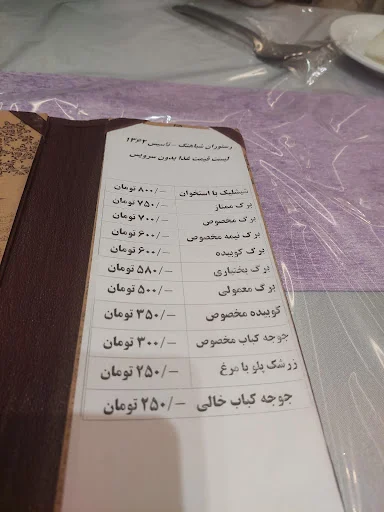 رستوران شباهنگ - تاسیس ۱۳۶۲
لیست قیمت غذا بدون سرویس
شیشلیک با استخوان ۸۰۰/- تومان
برگ ممتاز ۷۵۰/- تومان
برگ مخصوص ۷۰۰/- تومان
برگ نیمه مخصوص ۶۰۰/- تومان
برگ کوبیده ۶۰۰/- تومان
برگ بختیاری ۵۸۰/- تومان
برگ معمولی ۵۰۰/- تومان
کوبیده مخصوص ۳۵۰/- تومان
جوجه کباب مخصوص ۳۰۰/- تومان
زرشک پلو با مرغ ۲۵۰/- تومان
جوجه کباب خالی ۲۵۰/- تومان